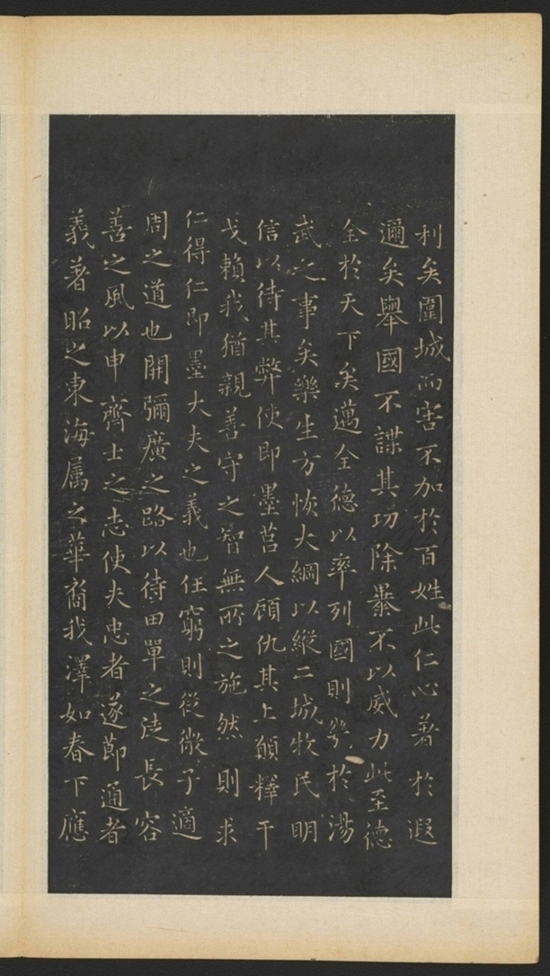 利矣圍城而害不加於百姓此仁心著於遐
邇矣舉國不謀其功除暴不以威力此至德
全於天下矣邁全德以率列國則幾於湯
武之事矣樂生方恢大綱以縱二城牧民明
信以待其弊使即墨莒人顧仇其上願釋干
戈賴我猶親善守之智無所之施然則求
仁得仁即墨大夫之義也任窮則從微子適
周之道也開彌廣之路以待田單之徒長容
善之風以申齊士之志使夫忠者遂節通者
義著昭之東海属之華裔我澤如春下應